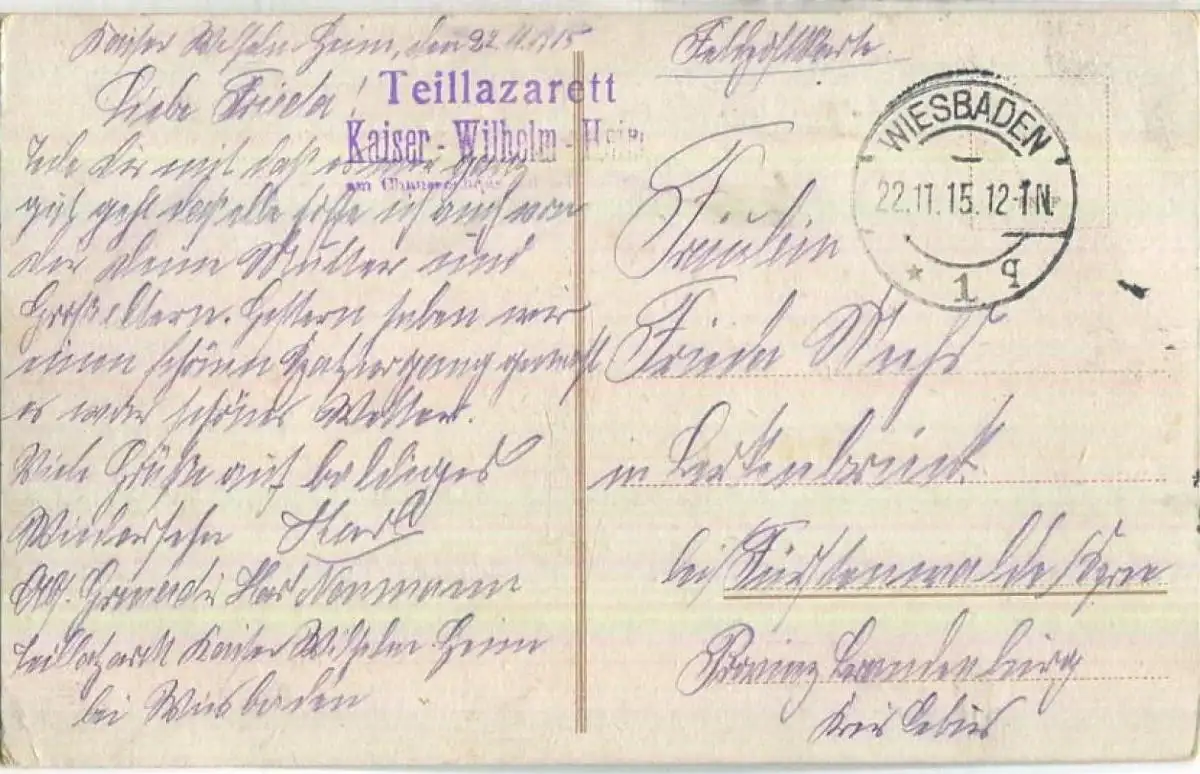 Kaiser Wilhelm Heim, den 22.11.1915
Liebe Frieda!
Teile Dir mit daß es mir ganz
gut geht dasselbe hoffe ich auch von
Dir Deine Mutter und
Großeltern. Gestern haben wir
einen schönen Spatziergang gemacht
es war schönes Wetter.
Viele Grüße auf baldiges
Wiedersehn Karl
Abs. Grenadir Karl Nonmann
Teillazarett Kaiser Wilhelm Heim
bei Wiesbaden
Teillazarett
Kaiser-Wilhelm-Heim
Feldpostkarte.
WIESBADEN
22.11.15.12-1N.
* 1 q
Fräulein
Frieda
in Berkenbrück
bei Fürstenwalde/Spree
Provinz Brandenburg
Kreis Lebus